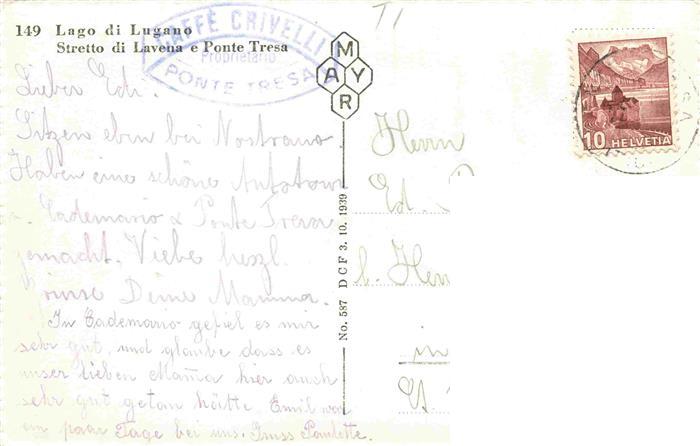 149 Lago di Lugano
Stretto di Lavena e Ponte Tresa
CAFFÈ CRIVELLI
Proprietario
PONTE TRESA
MAYR
T1
Lieber Edi.
Sitzen eben bei Nostrano.
Haben eine schöne Autotour
Cademario & Ponte Tresa
gemacht. Viele herzl.
Grüsse Deine Mamma.
In Cademario gefiel es mir
sehr gut, und glaube dass es
unser lieben Mama hier auch
sehr gut getan hätte. Emil war
ein paar Tage bei uns. Gruss Paulette.
No. 587 DCF 3. 10. 1939
Herrn
Ed.
b. Herr
in
St.
10 HELVETIA